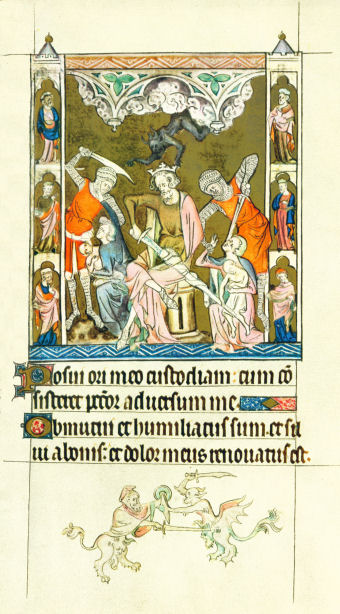 Posui ori meo custodiam: cum cō
sisteret pctōr aduersum me
Obmutui et humiliatus sum et sil
ui a bonis: et dolor meus renouatus est.